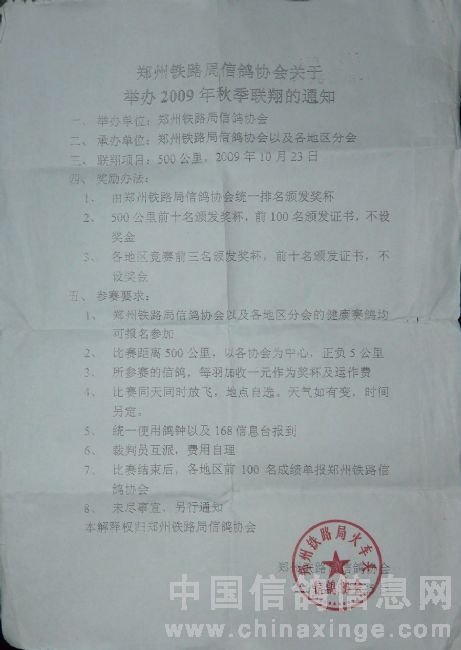 郑州铁路局信鸽协会关于
举办 2009 年秋季联翔的通知
一、 举办单位：郑州铁路局信鸽协会
二、 承办单位：郑州铁路局信鸽协会以及各地区分会
三、 联翔项目：500 公里，2009 年 10 月 23 日
四、 奖励办法：
1、 由郑州铁路局信鸽协会统一排名颁发奖杯
2、 500 公里前十名颁发奖杯，前 100 名颁发证书，不设
奖金
3、 各地区竞赛前三名颁发奖杯，前十名颁发证书，不
设奖金
五、 参赛要求：
1、 郑州铁路局信鸽协会以及各地区分会的健康赛鸽均
可报名参加
2、 比赛距离 500 公里，以各协会为中心，正负 5 公里
3、 所参赛的信鸽，每羽加收一元作为奖杯及运作费
4、 比赛同天同时放飞，地点自选。天气如有变，时间
另定。
5、 统一使用鸽钟以及 168 信息台报到
6、 裁判员互派，费用自理
7、 比赛结束后，各地区前 100 名成绩单报郑州铁路信
鸽协会
8、 未尽事宜，另行通知
本解释权归郑州铁路局信鸽协会
郑州铁路局信鸽协会
郑州铁路局火车头
信鸽协会
中国信鸽信息网
www.chinaxinge.com